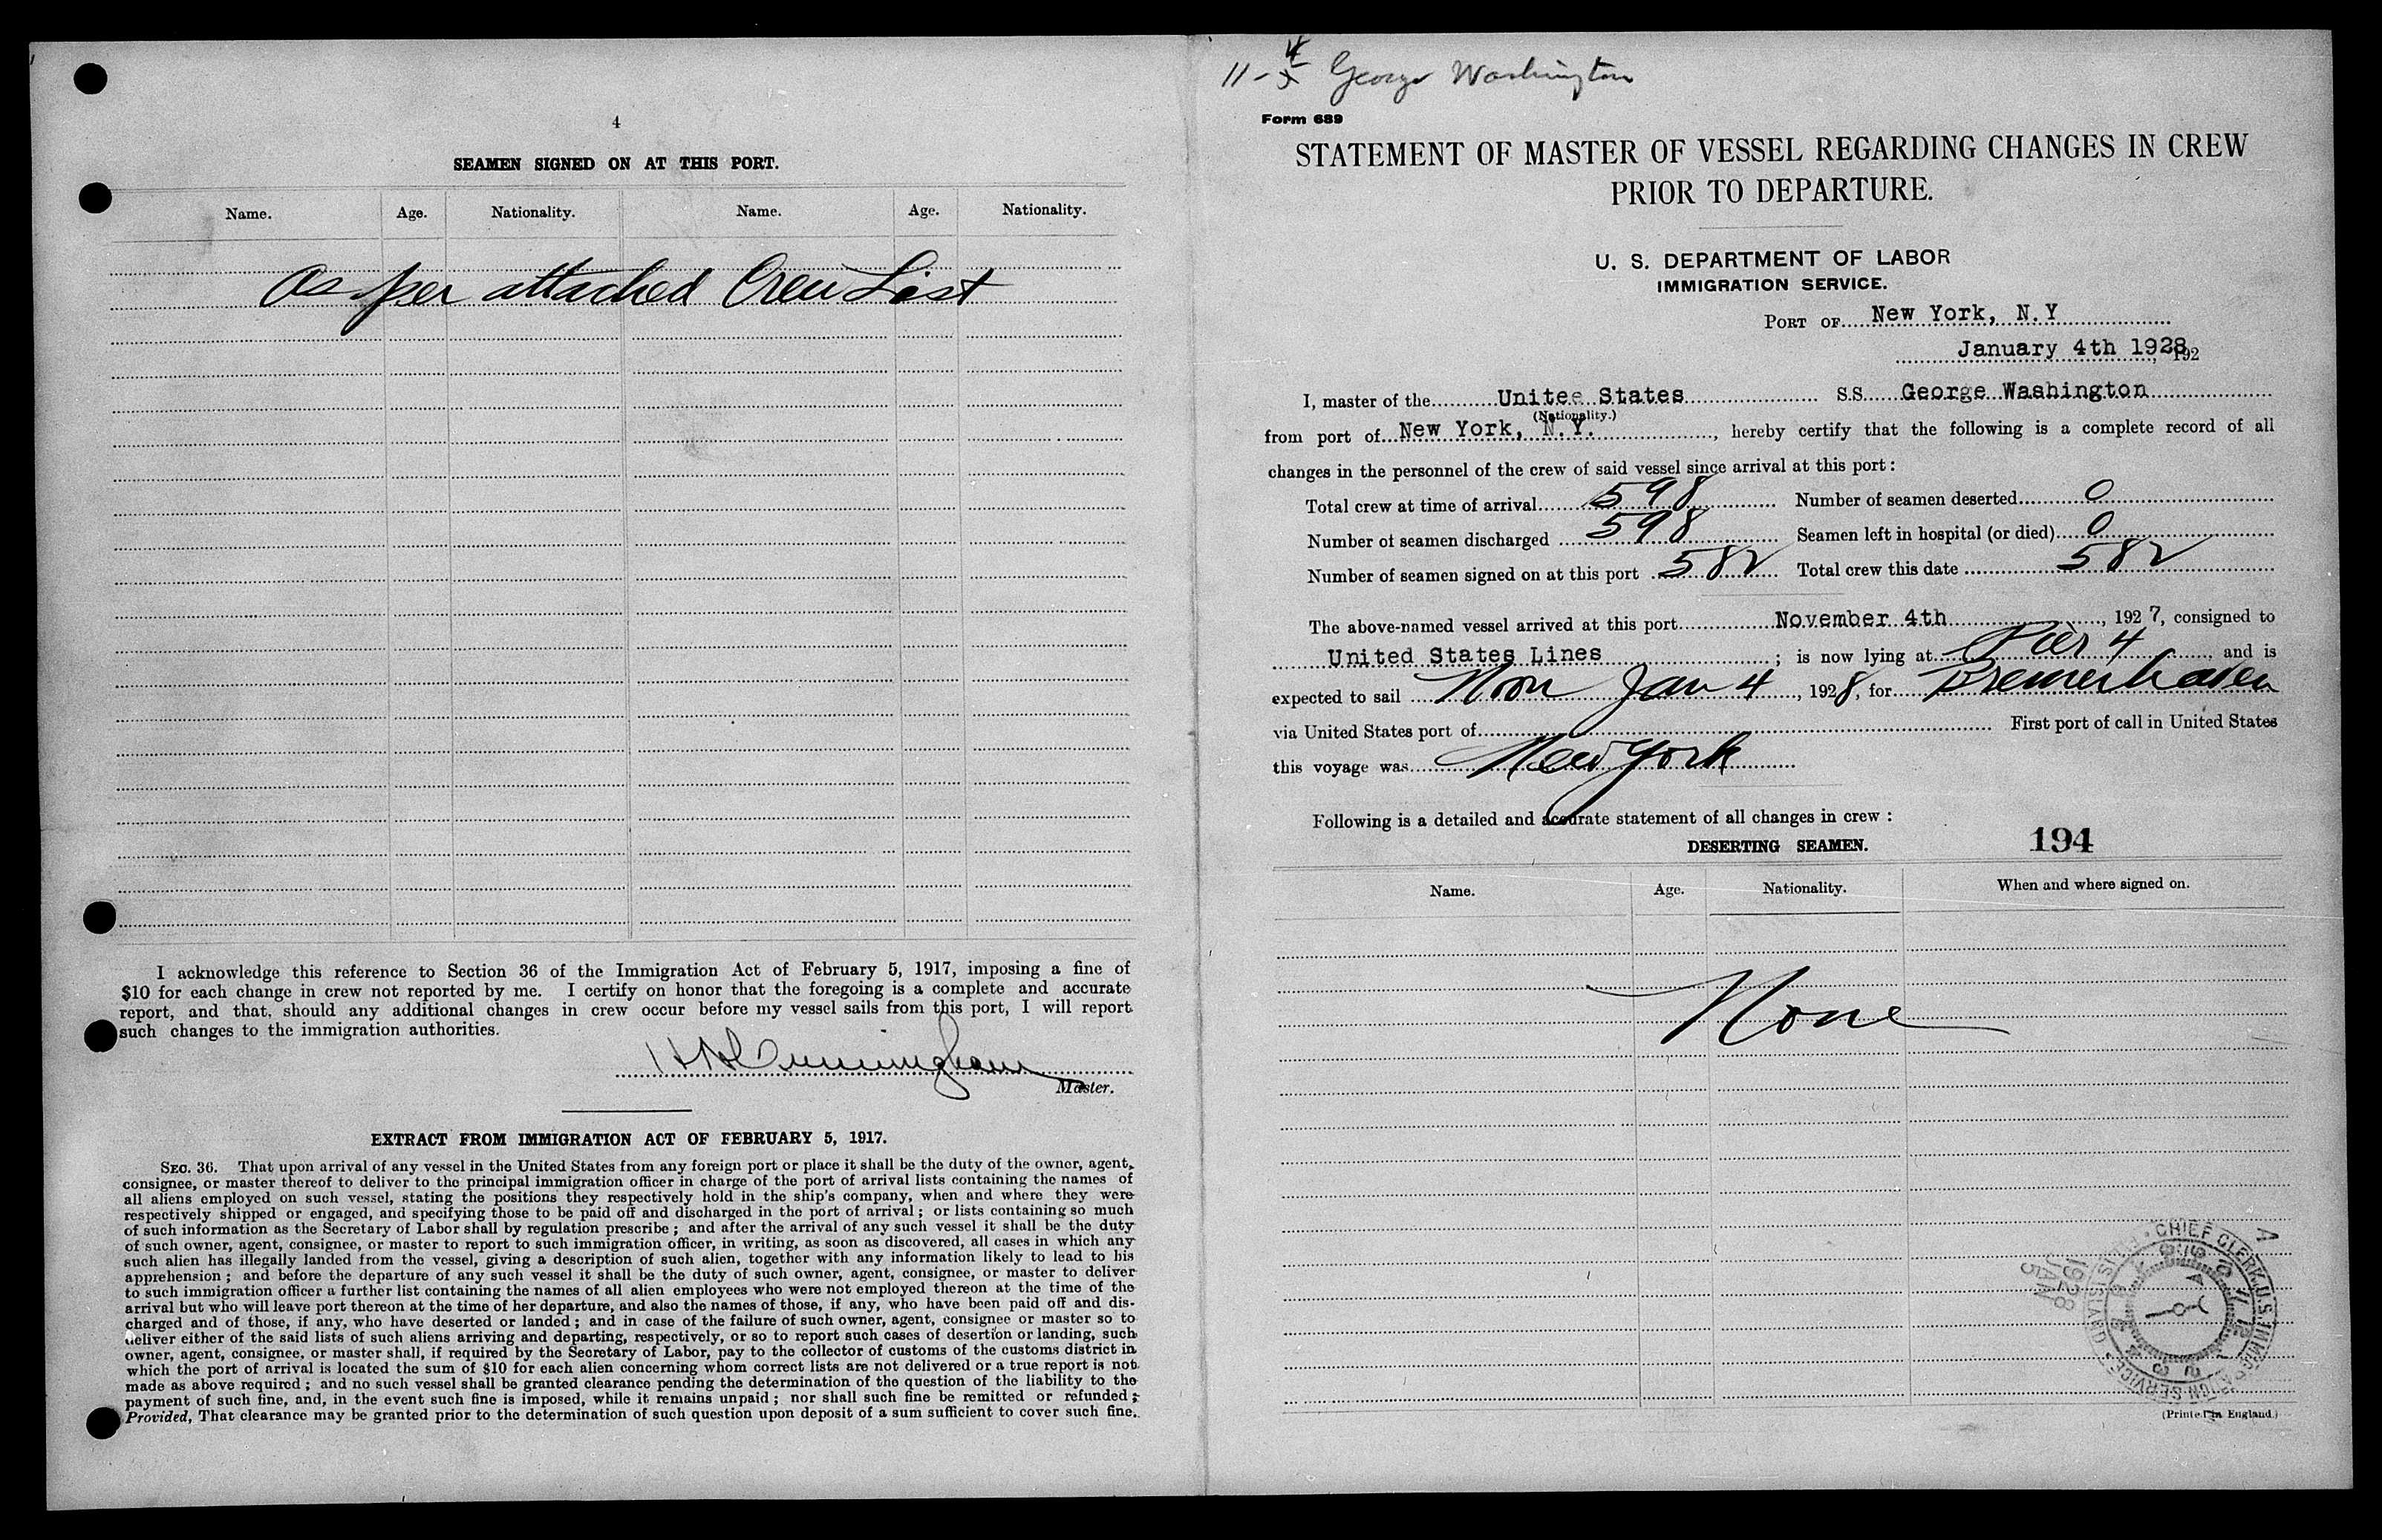 4
SEAMEN SIGNED ON AT THIS PORT.
Name. Age. Nationality. Name. Age. Nationality.
As per attached Crew List
I acknowledge this reference to Section 36 of the Immigration Act of February 5, 1917, imposing a fine of
$10 for each change in crew not reported by me. I certify on honor that the foregoing is a complete and accurate
report, and that, should any additional changes in crew occur before my vessel sails from this port, I will report
such changes to the immigration authorities.
Cunningham
Master.
EXTRACT FROM IMMIGRATION ACT OF FEBRUARY 5, 1917.
SEC. 36. That upon arrival of any vessel in the United States from any foreign port or place it shall be the duty of the owner, agent,
consignee, or master thereof to deliver to the principal immigration officer in charge of the port of arrival lists containing the names of
all aliens employed on such vessel, stating the positions they respectively hold in the ship's company, when and where they were
respectively shipped or engaged, and specifying those to be paid off and discharged in the port of arrival; or lists containing so much
of such information as the Secretary of Labor shall by regulation prescribe; and after the arrival of any such vessel it shall be the duty
of such owner, agent, consignee, or master to report to such immigration officer, in writing, as soon as discovered, all cases in which any
such alien has illegally landed from the vessel, giving a description of such alien, together with any information likely to lead to his
apprehension; and before the departure of any such vessel it shall be the duty of such owner, agent, consignee, or master to deliver
to such immigration officer a further list containing the names of all alien employees who were not employed thereon at the time of the
arrival but who will leave port thereon at the time of her departure, and also the names of those, if any, who have been paid off and dis-
charged and of those, if any, who have deserted or landed; and in case of the failure of such owner, agent, consignee or master so to
deliver either of the said lists of such aliens arriving and departing, respectively, or so to report such cases of desertion or landing, such
owner, agent, consignee, or master shall, if required by the Secretary of Labor, pay to the collector of customs of the customs district in
which the port of arrival is located the sum of $10 for each alien concerning whom correct lists are not delivered or a true report is not
made as above required; and no such vessel shall be granted clearance pending the determination of the question of the liability to the
payment of such fine, and, in the event such fine is imposed, while it remains unpaid; nor shall such fine be remitted or refunded:
Provided, That clearance may be granted prior to the determination of such question upon deposit of a sum sufficient to cover such fine.
11-4 George Washington
Form 689
STATEMENT OF MASTER OF VESSEL REGARDING CHANGES IN CREW
PRIOR TO DEPARTURE.
U. S. DEPARTMENT OF LABOR
IMMIGRATION SERVICE.
PORT OF New York, N.Y
January 4th 1928, 192
I, master of the Unitee States S.S. George Washington
(Nationality.)
from port of New York, N.Y. , hereby certify that the following is a complete record of all
changes in the personnel of the crew of said vessel since arrival at this port:
Total crew at time of arrival 598 Number of seamen deserted 0
Number of seamen discharged 598 Seamen left in hospital (or died) 0
Number of seamen signed on at this port 582 Total crew this date 582
The above-named vessel arrived at this port November 4th , 1927, consigned to
United States Lines ; is now lying at Pier 4 , and is
expected to sail Noon Jan 4 , 1928, for Bremerhaven
via United States port of First port of call in United States
this voyage was New York
Following is a detailed and accurate statement of all changes in crew:
DESERTING SEAMEN. 194
Name. Age. Nationality. When and where signed on.
None
CHIEF CLERK, U.S. IMMIGRATION SERVICE
1928
JAN
5
(Printed in England.)